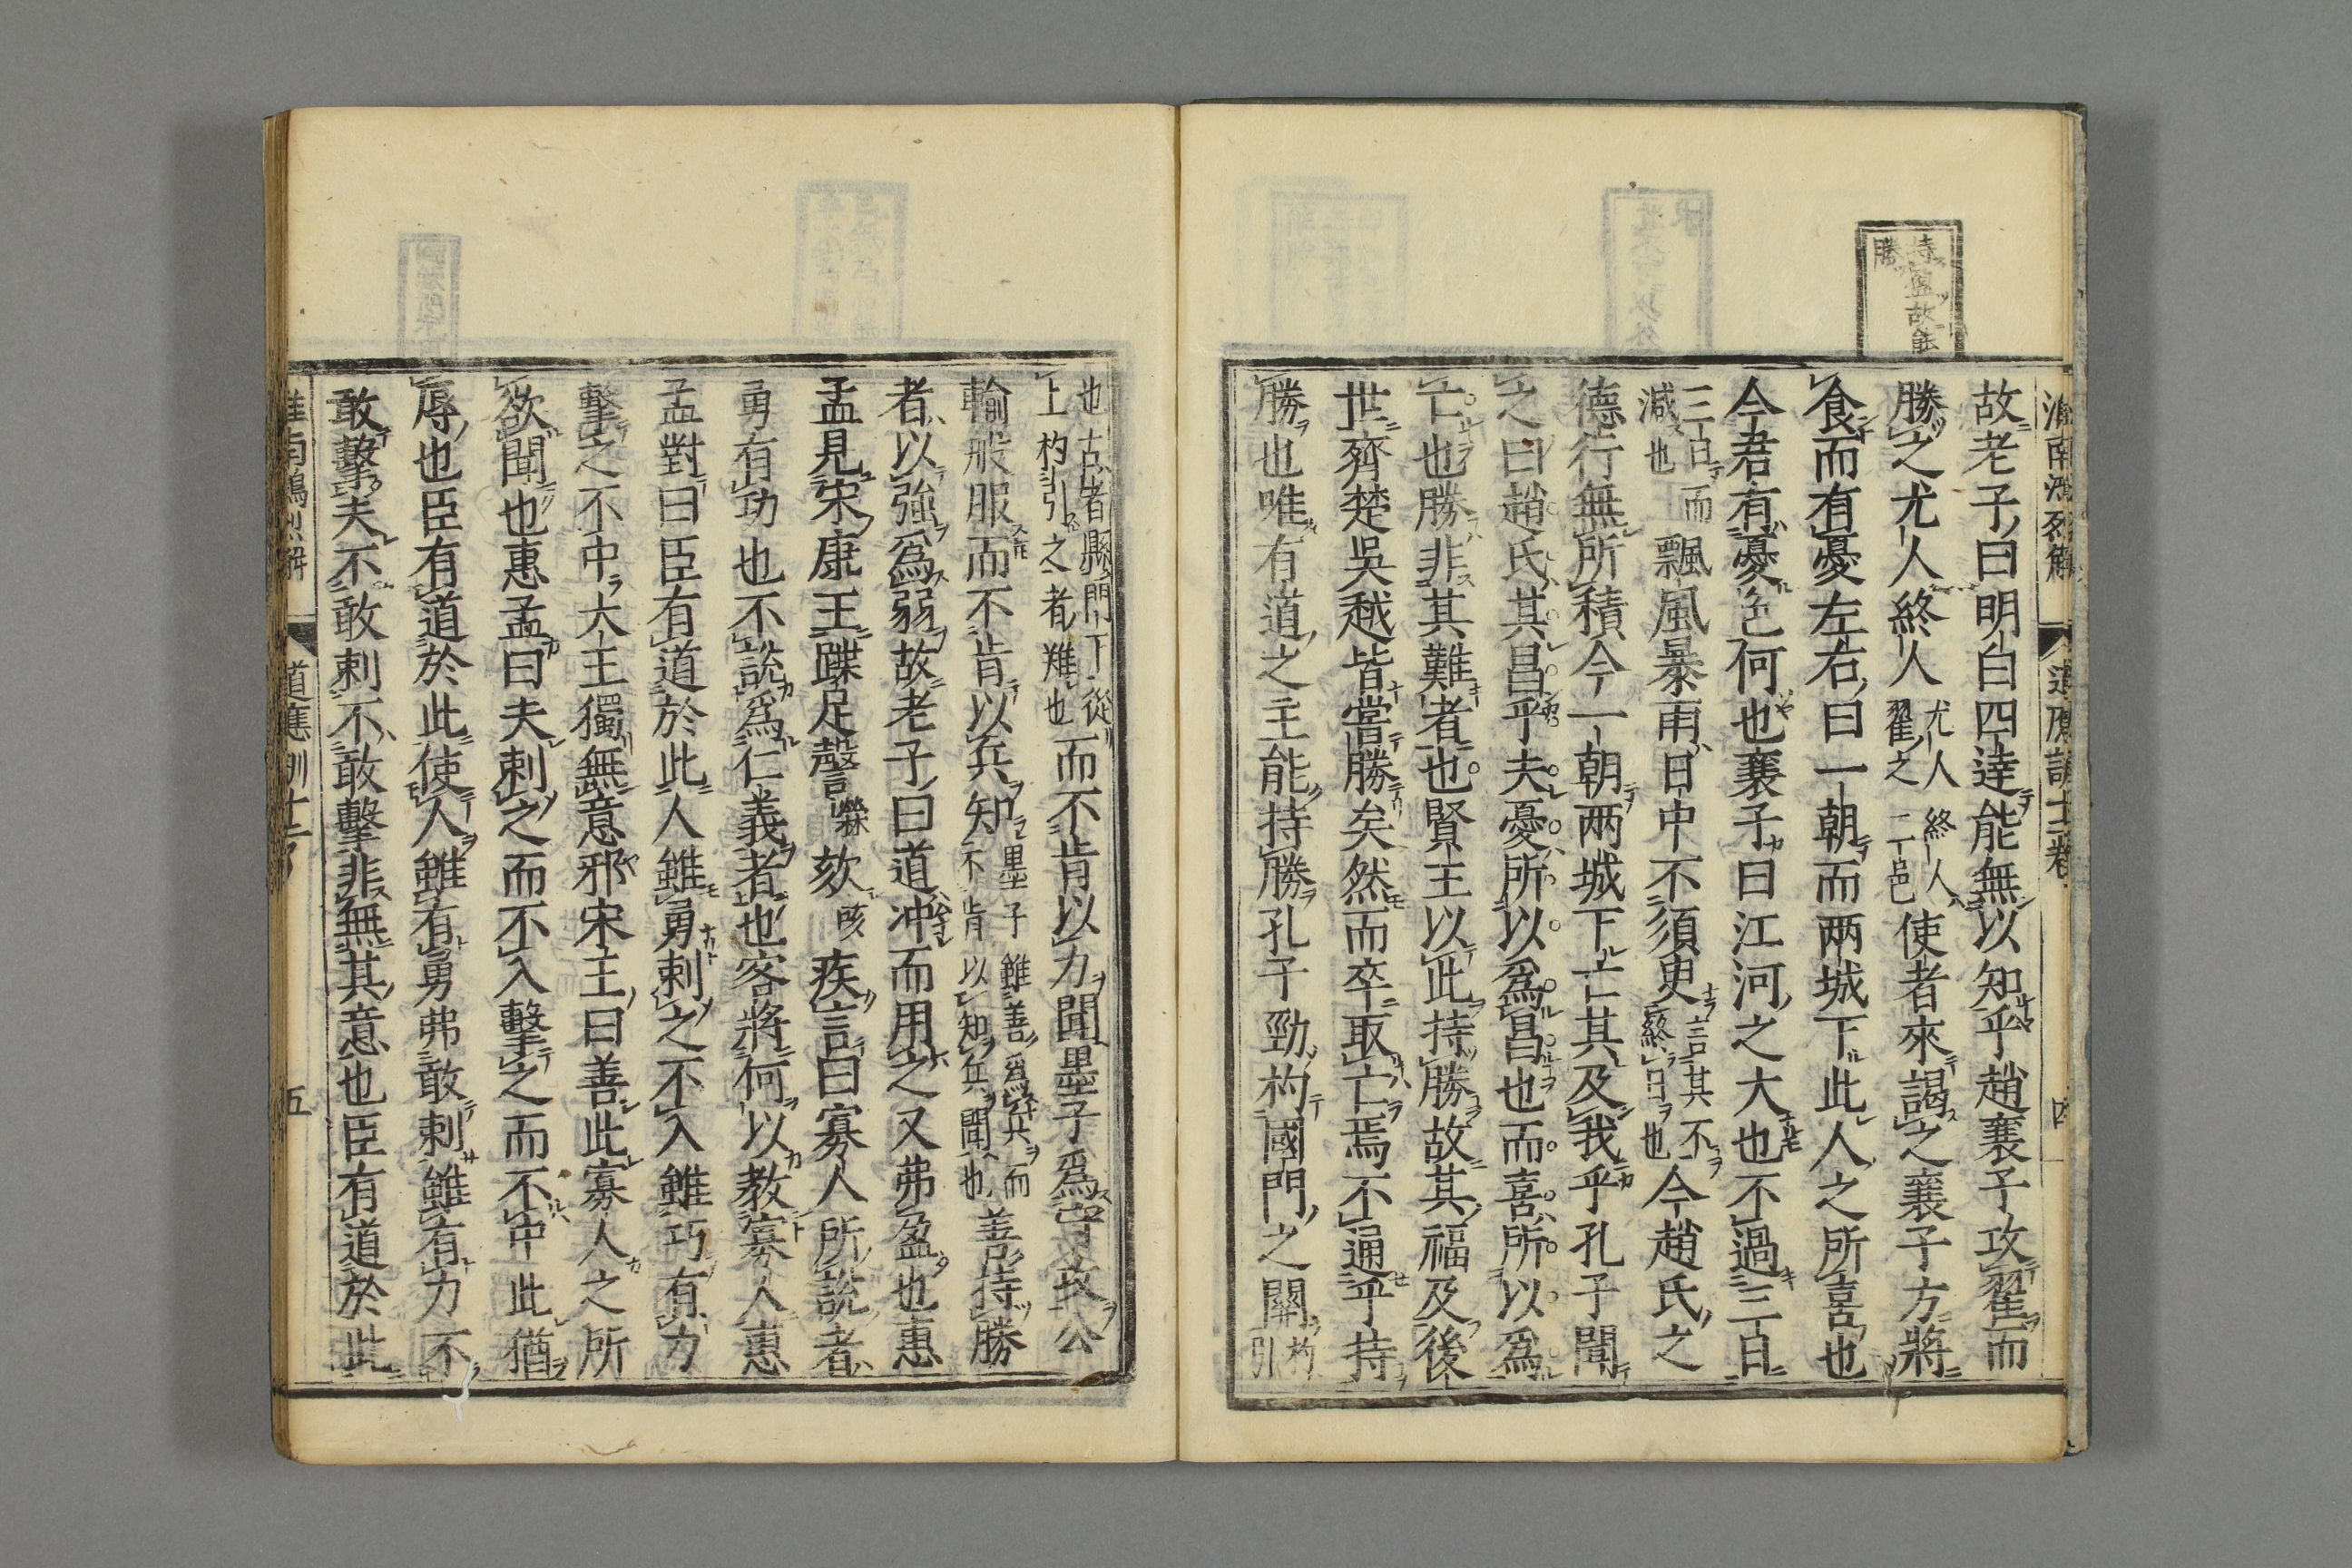 持盈故能
勝
淮南鴻烈解 道應訓十二卷 四
故老子曰明白四達能無以知乎趙襄子攻翟而
勝之尤人終人尤人終人翟之二邑使者來謁之襄子方將
食而有憂左右曰一朝而兩城下此人之所喜也
今君有憂色何也襄子曰江河之大也不過三日
三日而減也飄風暴雨日中不須臾言其不終日也今趙氏之
德行無所積今一朝两城下亡其及我乎孔子聞
之曰趙氏其昌乎夫憂所以爲昌也而喜所以爲
亡也勝非其難者也賢主以此持勝故其福及後
世齊楚吳越皆嘗勝矣然而卒取亡焉不通乎持
勝也唯有道之主能持勝孔子勁杓國門之關杓引
也古者縣門下從上杓引之者難也而不肯以力聞墨子爲守攻公
輸般服而不肯以兵知墨子雖善爲兵而不肯以知兵聞也善持勝
者以強爲弱故老子曰道冲而用之又弗盈也惠
孟見宋康王蹀足謦欬咳疾言曰寡人所說者
勇有功也不說爲仁義者也客將何以教寡人惠
孟對曰臣有道於此人雖勇刺之不入雖巧有力
擊之不中大王獨無意邪宋王曰善此寡人之所
欲聞也惠孟曰夫刺之而不入擊之而不中此猶
辱也臣有道於此使人雖有勇弗敢刺雖有力不
敢擊夫不敢刺不敢擊非無其意也臣有道於此
淮南鴻烈解 道應訓十二 五